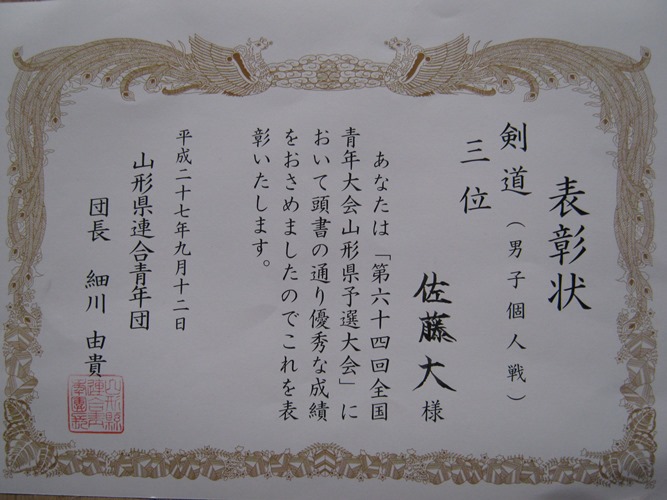 表彰状
剣道（男子個人戦）
三位
佐藤大様
あなたは「第六十四回全国
青年大会山形県予選大会」に
おいて頭書の通り優秀な成績
をおさめましたのでこれを表
彰いたします。
平成二十七年九月十二日
山形県連合青年団
団長 細川 由貴